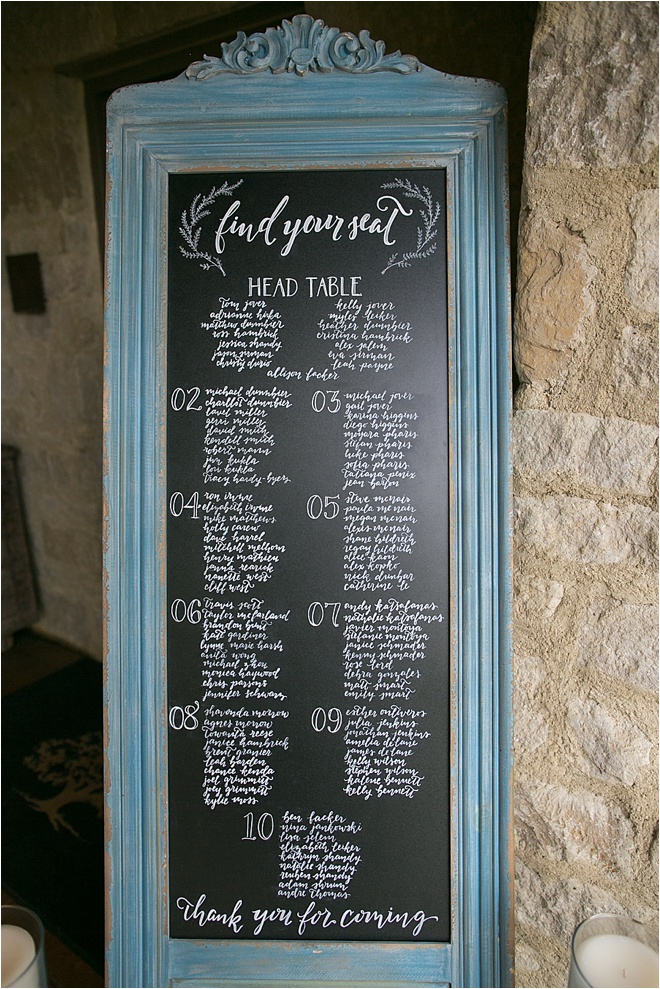 find your seat
HEAD TABLE
Tom jover
adrianne huka
matthew dumnbier
ross hambrick
jessica shandy
jason sirman
christy durio
kelly jover
myles leiker
heather dumnbier
cristina hambrick
alex jelem
eva sirman
leah payne
allison facker
02
michael dumnbier
charllot dumnbier
laurel miller
gerri miller
david smith
kendell smith
robert mann
jim kukla
lori kukla
tracy hardy-byers
03
michael jover
gail jover
karina higgins
diego higgins
moyara pharis
stefan pharis
luke pharis
sofia pharis
tatiana penix
jean barton
04
ron irvine
elizabeth irvine
mike matthews
holly carew
dave harrel
mitchell melhorn
henry mathieu
nanette west
cliff west
05
steve mcnair
paula mcnair
megan mcnair
alexis mcnair
shane hildreth
regay hildreth
allie kaon
alex kopko
nick dunbar
catherine le
06
travis scott
taylor mcfarland
brandon hunt
kate gardiner
lynne marie harsh
anita wong
michael zhou
monica haywood
chris parsons
jennifer schwarz
07
andy katsafanas
nathalie katsafanas
javier montoya
stefanie montoya
janice schmader
kenny schmader
rose lord
debra gonzales
matt smart
emily smart
08
shawnda morrow
agnes morrow
towanta reese
janice hambrick
brent granier
leah barden
chance kenda
joel grimmitt
joey grimmitt
kylie moss
09
esther ontiveros
julia jenkins
jonathan jenkins
amelia delane
james delane
kelly wilson
stephen wilson
kalene bennett
kelly bennett
10
ben facker
nina jankowski
lisa jelem
elizabeth leiker
kathryn shandy
natalie shandy
reuben shandy
adam shrum
andre thomas
thank you for coming